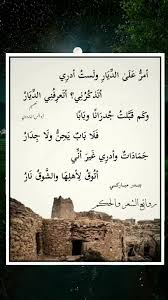 أمرُّ عَلىٰ الدِّيَارِ ولستُ أدرِي
أتَذكُرُنِي؟ أتَعرِفُنِي الدِّيَارُ
وكَم قَبَّلتُ جُدرَانًا وبَابًا
فلَا بَابٌ يَحِنُّ ولَا جِدَارُ
جَمَادَاتٌ وأدرِي غَيرَ أنِّي
أتُوقُ لِأهلِهَا والشَّوقُ نَارُ
روائع الشعر والحكم